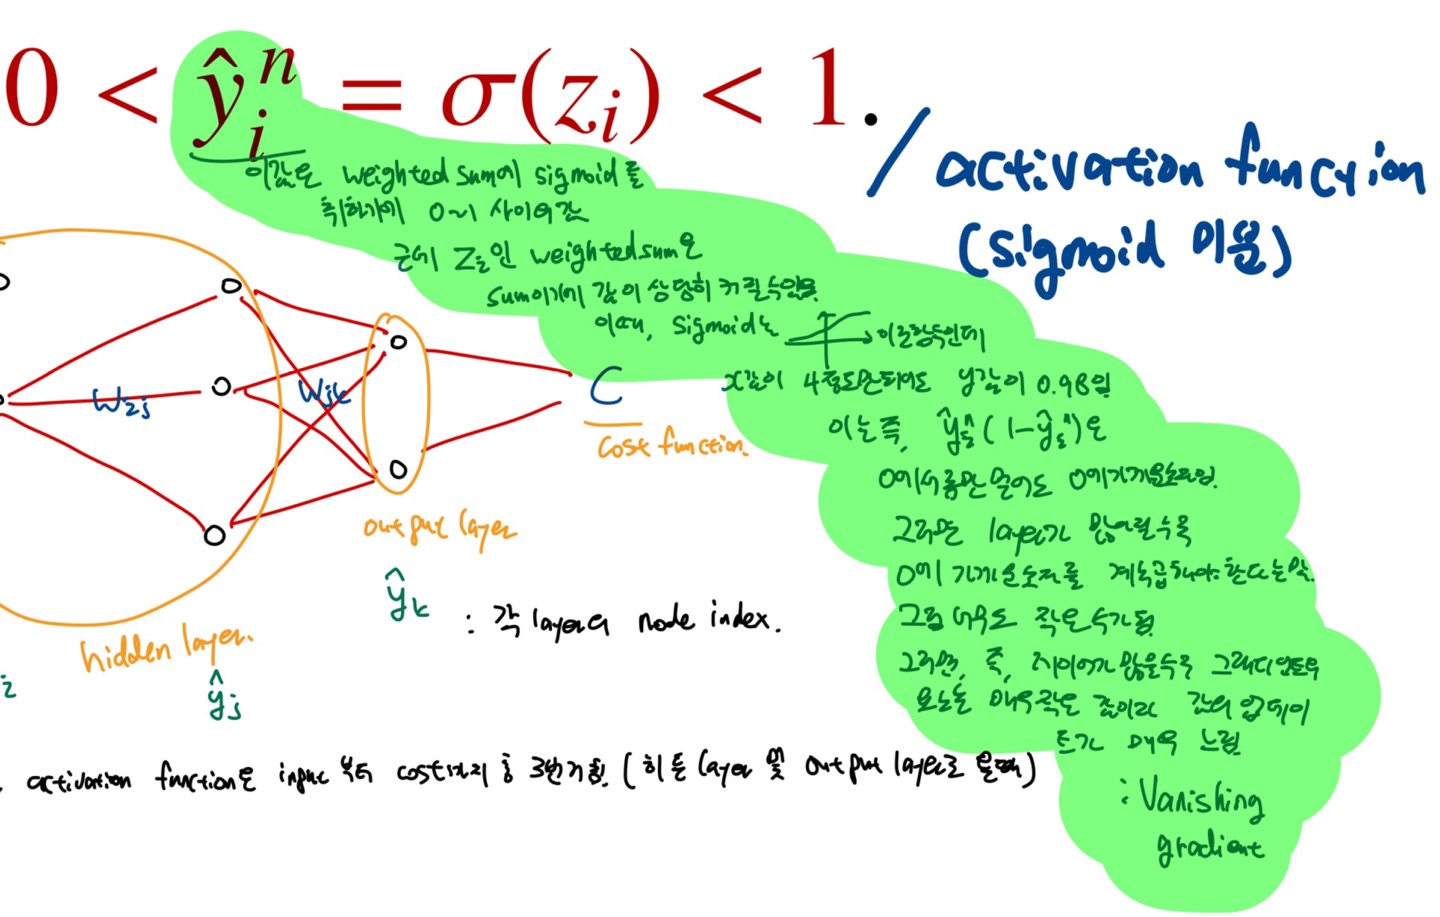 0 < ŷᵢⁿ = σ(zᵢ) < 1.
activation function
(sigmoid 미분)
이값은 weighted sum에 sigmoid를
취하기에 0~1 사이의 값
근데 Zᵢ인 weightedsum은
sum이기에 값이 상당히 커질수있음.
이때, sigmoid는 이런함수인데
x값이 4정도만되어도 y값이 0.98임
이는 즉, ŷᵢⁿ(1-ŷᵢⁿ)은
0에서 조금만 멀어도 0에가까운숫자임.
그러면 layer가 많아질수록
0에 가까운숫자를 계속곱해야한다는말.
그럼 매우도 작은수가됨
그러면, 즉, 레이어가 많을수록 그래디언트
매우작은 값이라 값의 업데이
트가 매우 느림
: Vanishing
gradient
W₂ⱼ
Wⱼₖ
C
cost function.
output layer
ŷₖ
: 각 layer의 node index.
hidden layer.
ŷⱼ
activation function은 input 부터 cost까지 총 3번거침. (히든 layer 및 output layer로 올때)